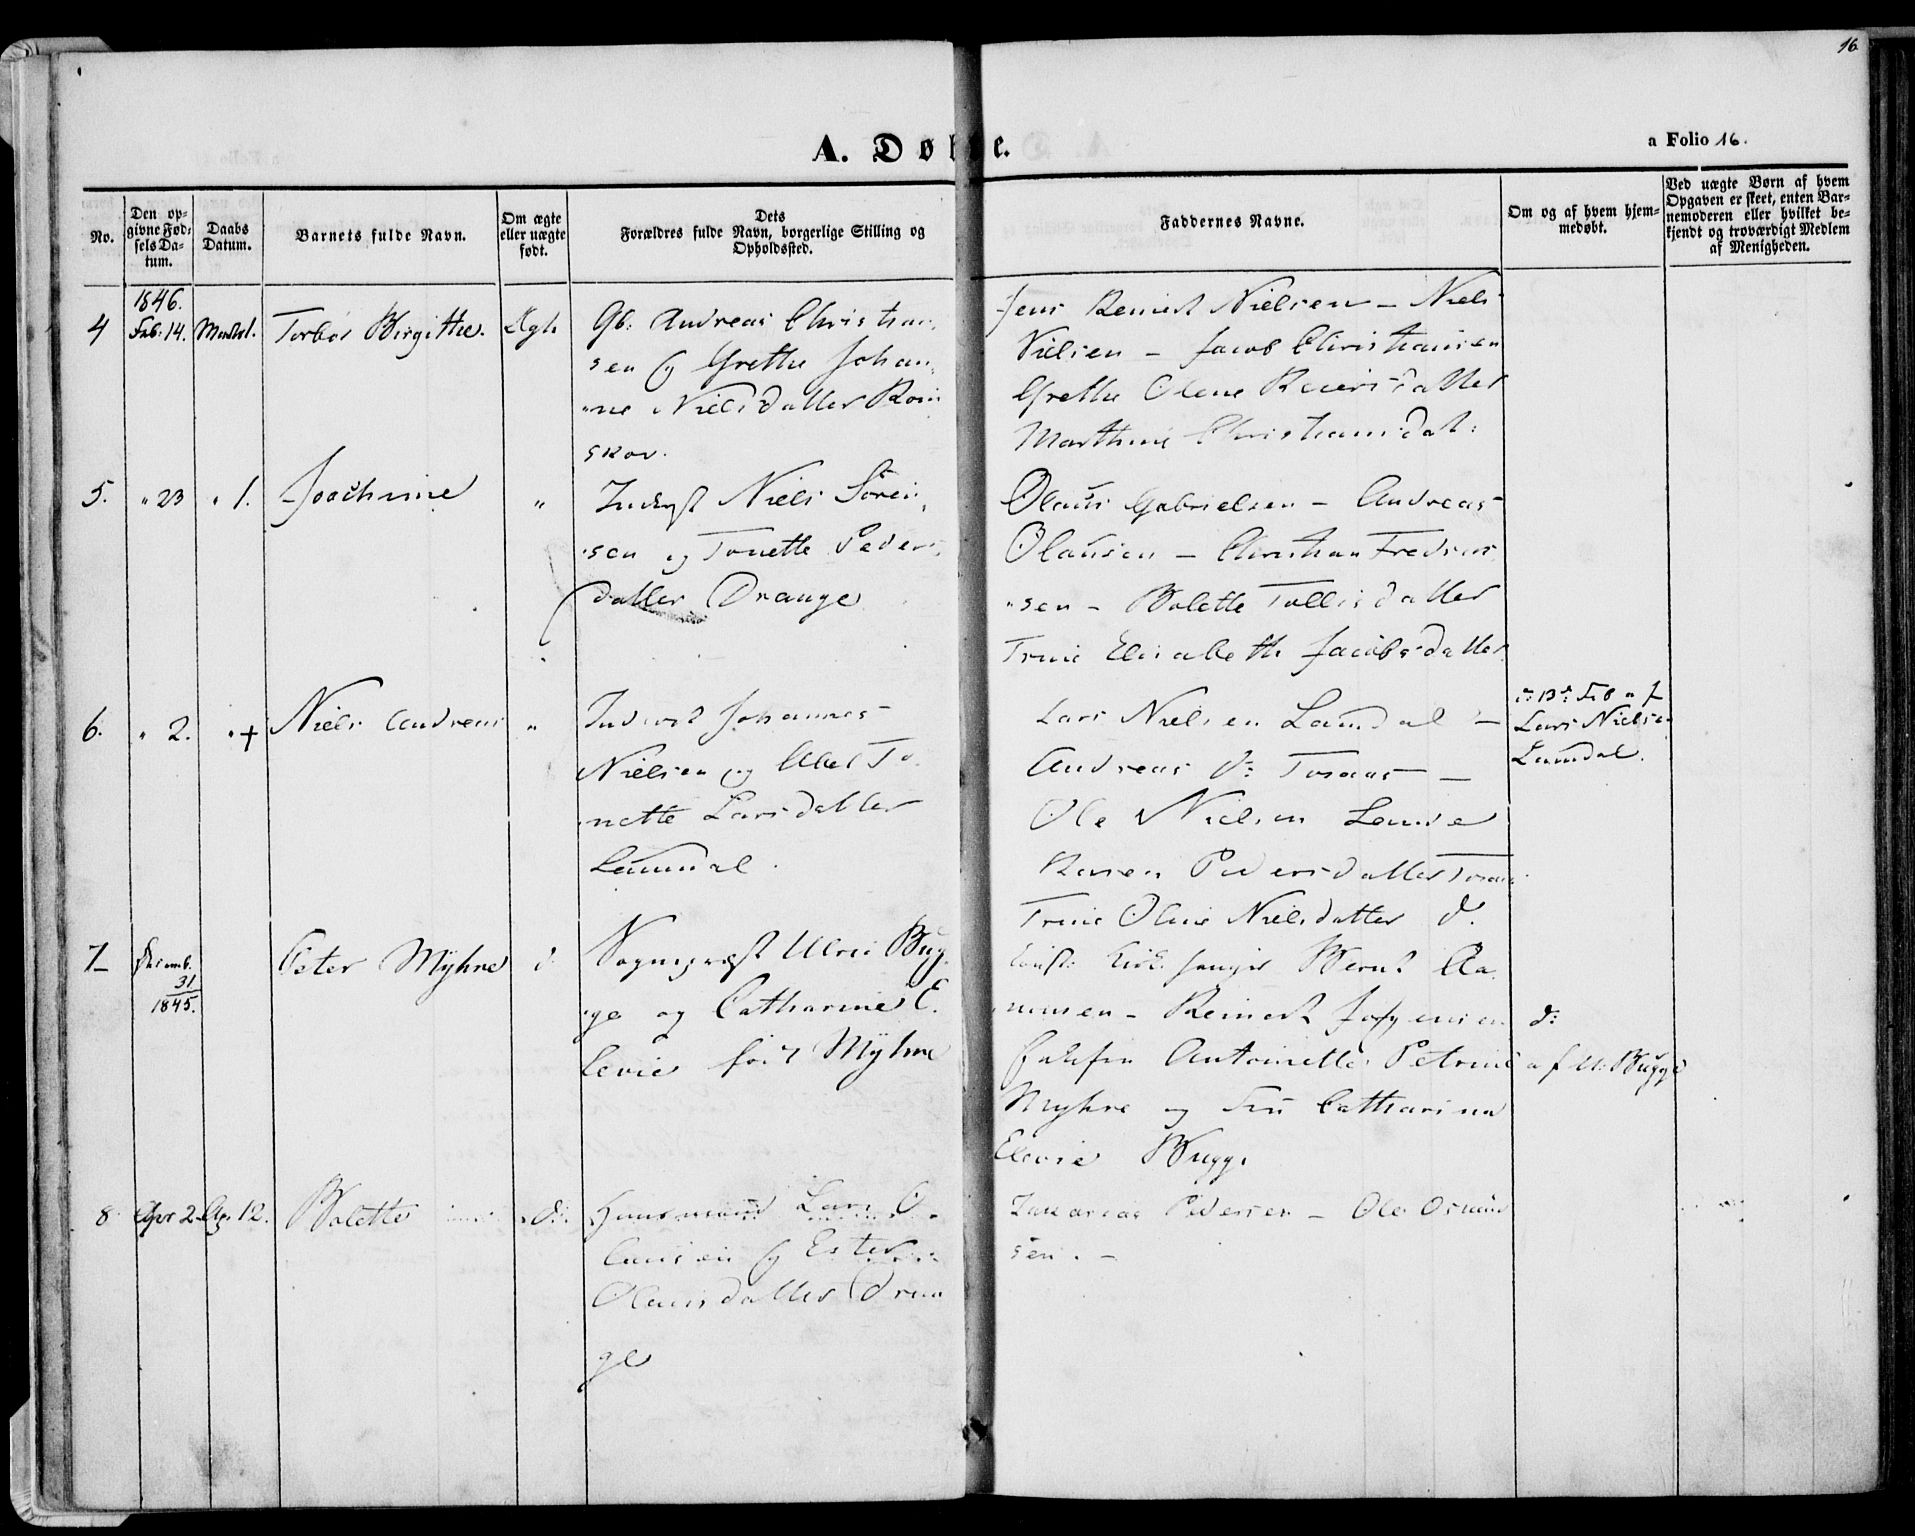 16
A. Døbte.
a Folio 16.
No.
Den op-
givne Fød-
sels Da-
tum.
Daabs
Datum.
Barnets fulde Navn.
Om ægte
eller uægte
født.
Dets
Forældres fulde Navn, borgerlige Stilling og
Opholdssted.
Faddernes Navne.
Om og af hvem hjem-
medøbt.
Ved uægte Børn af hvem
Opgaven er skeet, enten Bar-
nemoderen eller hvilket be-
kjendt og troværdigt Medlem
af Menigheden.
1846.
4 Feb. 14. Birgitte. Ægte
Gb: Andreas Christian-
sen og Grethe Johan-
ne Nielsdatter
skov.
Jens Reinert Nielsen - Niels
Nielsen - Jacob Christiansen
Grethe Olene Reiersdatter
Marthine Christiansdat:
5. " 23 " 1. Joachime "
Niels Sören-
sen og Tonette Peders-
datter Drange
Olaus Gabrielsen - Andreas
Olausen - Christian
sen - Bolette Tollisdatter
Trine Elisabeth Jacobsdatter
6. " 2. " + Niels Andreas "
Johannes
Nielsen og Abel To-
nette Larsdatter
Laundal.
Lars Nielsen Laundal -
Andreas d: -
Ole Nielsen Lande
Karen Pedersdatter
Trine Oline Nielsdatter d.
13 Feb af
Lars Nielsen
Laundal.
7 Decemb.
31
1845.
Peter Myhre d:
Sognepræst Ulric Bug-
ge og Catharine E-
levie föd Myhre
Kirkesanger Bernt Aa-
nensen - Reinert Jörgensen
Antoinette Petrine
Myhre og Fru Catharina
Elevie Bugge
d:
af U: Bugge
8 Apr 2 Ap. 12. Bolette d:
Huusmand Lars O-
lausen og Ester
Olausdatter Dran
ge
Zakarias Pedersen - Ole Osmund
sen. -